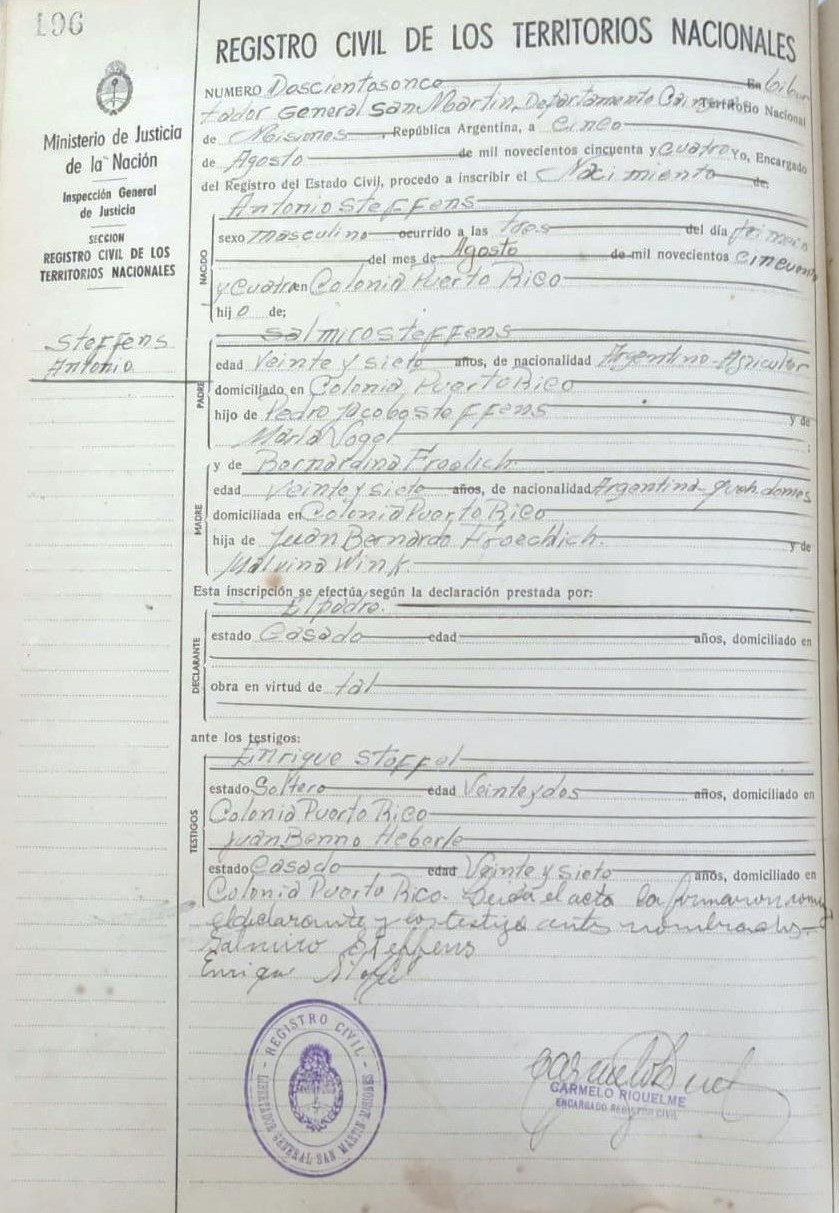 196
REGISTRO CIVIL DE LOS TERRITORIOS NACIONALES
Ministerio de Justicia
de la Nación
Inspección General
de Justicia
SECCION
REGISTRO CIVIL DE LOS
TERRITORIOS NACIONALES
Steffens
Antonio
NUMERO Doscientosonce En Liber
tador General San Martin, Departamento Territorio Nacional
de Misiones, República Argentina, a Cinco
de Agosto de mil novecientos cincuenta y Cuatro Yo, Encargado
del Registro del Estado Civil, procedo a inscribir el Nacimiento de
Antonio Steffens
NACIDO
sexo masculino ocurrido a las tres del día primero
del mes de Agosto de mil novecientos Cincuenta
y Cuatro en Colonia Puerto Rico
hijo de;
Salmiro Steffens
PADRE
edad Veinte y siete años, de nacionalidad Argentino-Agricultor
domiciliado en Colonia Puerto Rico
hijo de Pedro Jacobo Steffens y de
Maria Vogel ;
MADRE
y de Bernardina Froelich
edad Veinte y siete años, de nacionalidad Argentina-
domiciliada en Colonia Puerto Rico
hija de Juan Bernardo Froechlich. y de
Malvina Wink.
Esta inscripción se efectúa según la declaración prestada por:
El padre.
DECLARANTE
estado Casado edad años, domiciliado en
obra en virtud de tal
ante los testigos:
Enrique Stoffel
TESTIGOS
estado Soltero edad Veinteydos años, domiciliado en
Colonia Puerto Rico
Juan Benno Heberle
estado Casado edad Veinte y siete años, domiciliado en
Colonia Puerto Rico. Leida el acta la firmaron
el declarante y los testigo antes nombrados-
Salmiro Steffens
REGISTRO CIVIL
LIBERTADOR GENERAL SAN MARTIN-MISIONES
CARMELO RIQUELME
ENCARGADO REGISTRO CIVIL